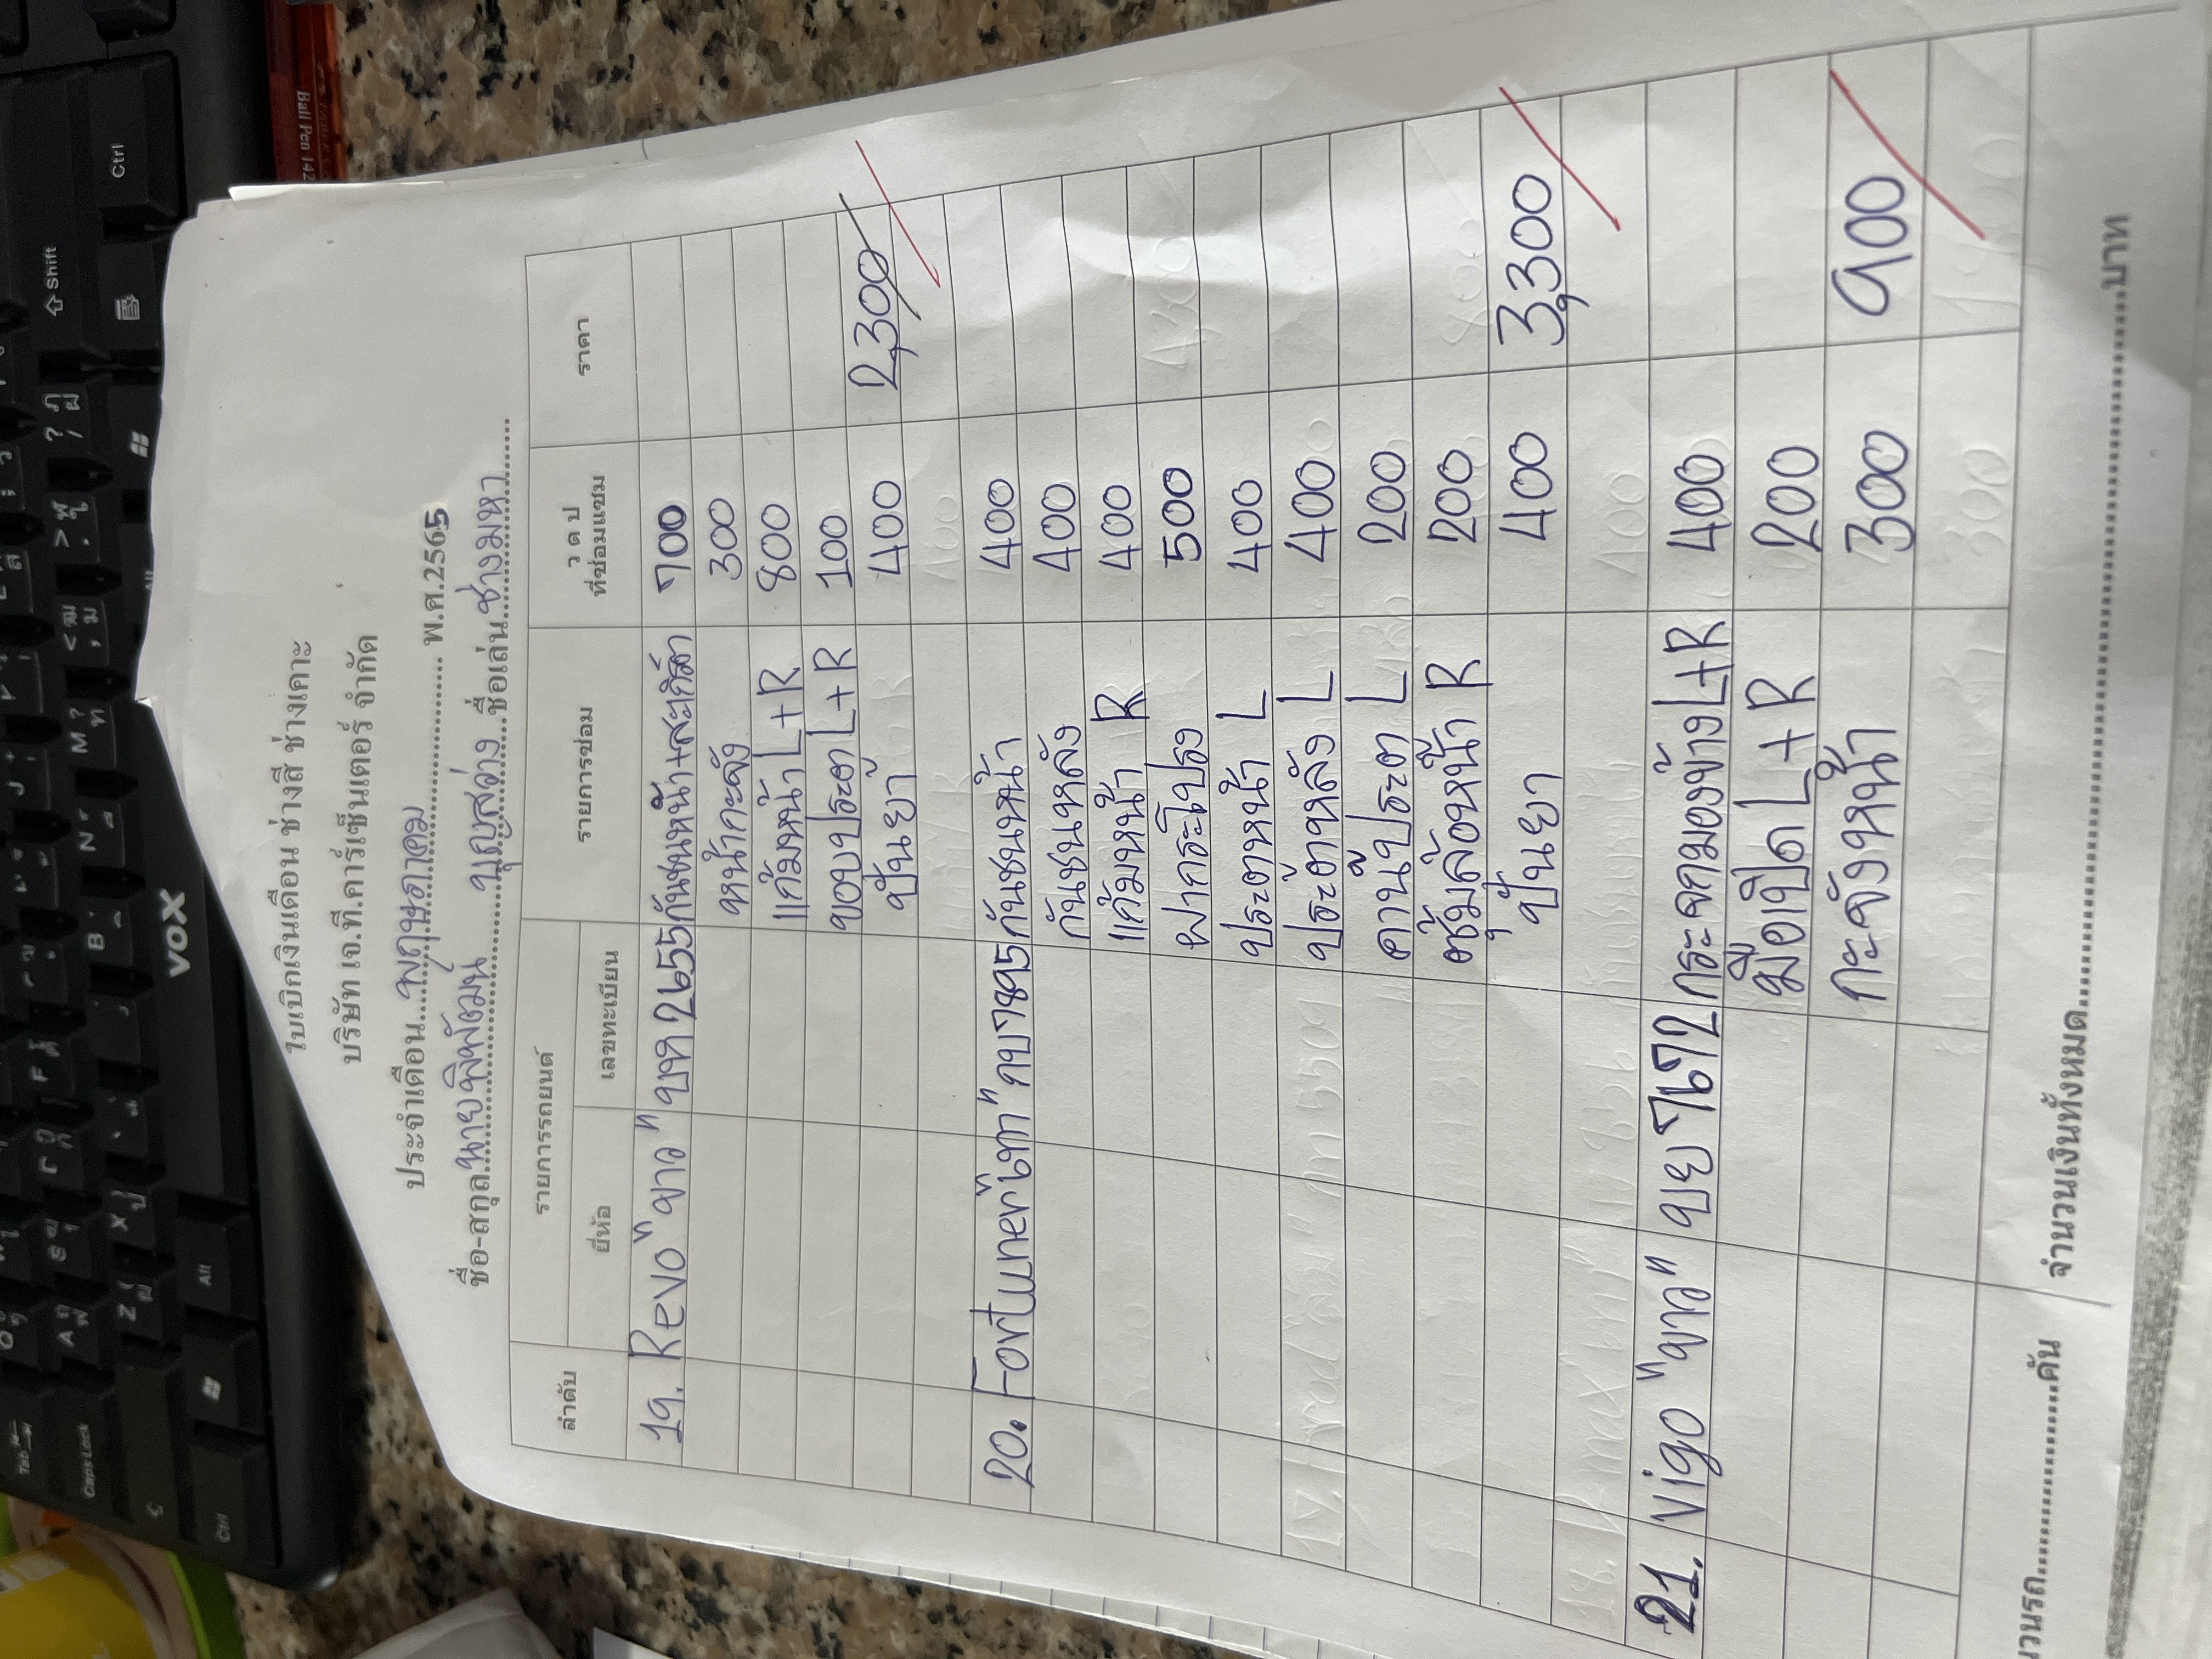 ใบเบิกเงินเดือน ช่างสี ช่างเคาะ
บริษัท เจ.ที.คาร์เซ็นเตอร์ จำกัด
ประจำเดือน...พฤษภาคม... พ.ศ.2565
ชื่อ-สกุล นายพิพัฒมน์ บุญสว่าง ชื่อเล่น ช่างมหา
ลำดับ รายการรถยนต์ รายการซ่อม ว ด ป ที่ซ่อมแซม ราคา
ยี่ห้อ เลขทะเบียน
19. Revo "ขาว" บท 2655 กันชนหน้า+สะเกิร์ต 700
หน้ากะจัง 300
แก้มหน้า L+R 800
ขอบประตู L+R 100
ปั่นยา 400 2,300
20. Fortuner "เทา" กบ 7895 กันชนหน้า 400
กันชนหลัง 400
แก้มหน้า R 400
ฝากระโปรง 500
ประตูหน้า L 400
ประตูหลัง L 400
คานประตู L 200
ซุ้มล้อหน้า R 200
ปั่นยา 400 3,300
21. Vigo "ขาว" ขย 7672 กระจกมองข้าง L+R 400
มือเปิด L+R 200
กะจังหน้า 300 900
วนรถ...คัน จำนวนเงินทั้งหมด...บาท
Ball Pen 142
VOX
Shift
Ctrl
Alt
Tab
Caps Lock